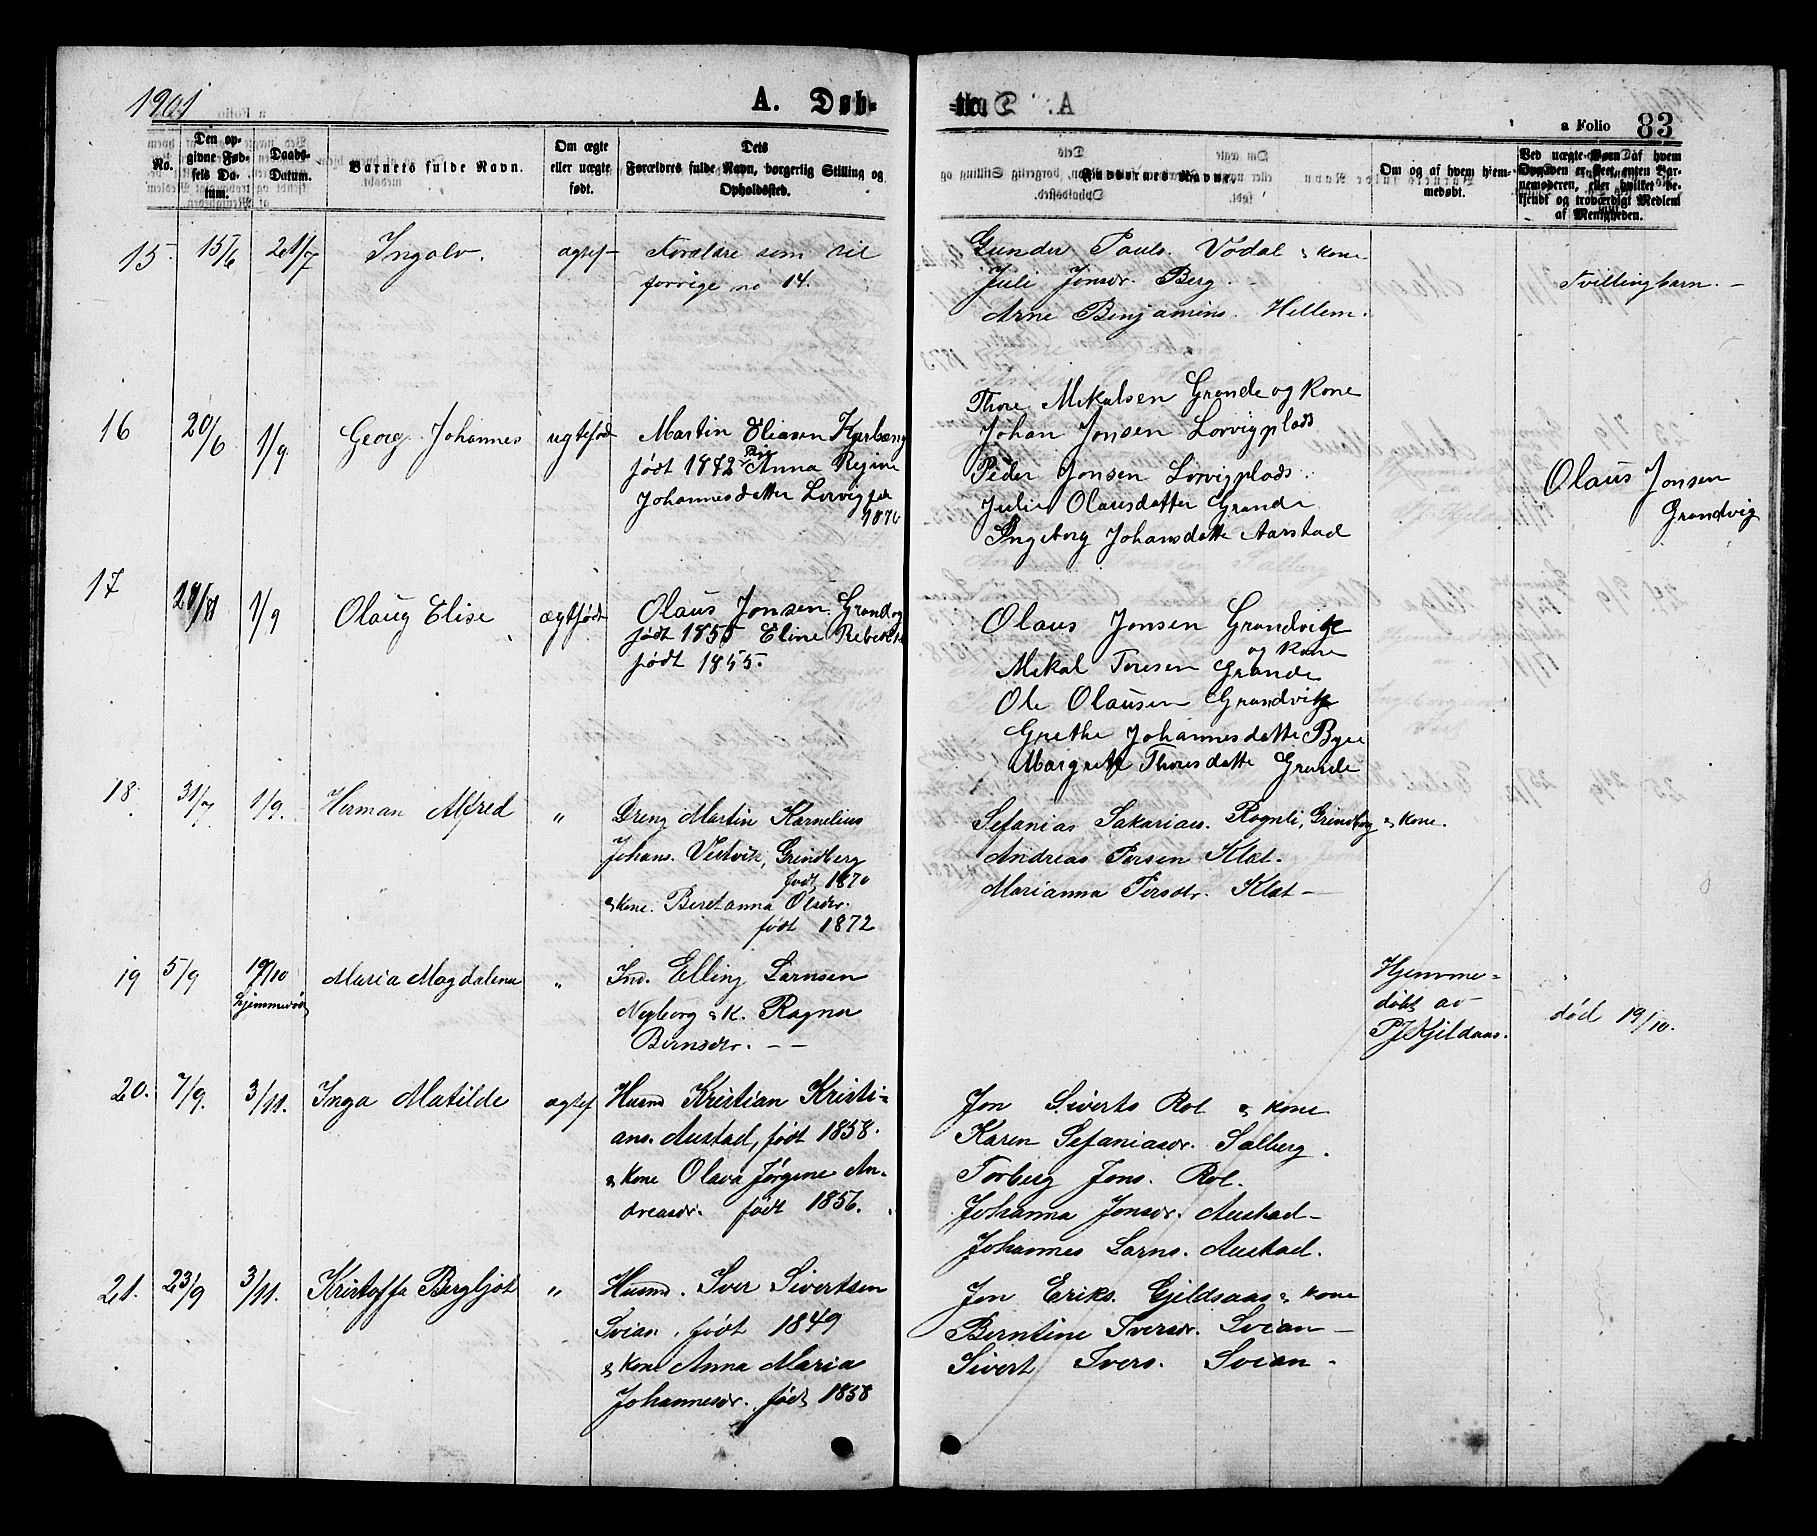 1901
A. Døb-
te.
a Folio 83
No.
Den op-
givne Fød-
sels Da-
tum.
Daabs-
Datum.
Barnets fulde Navn.
Om ægte
eller uægte
født.
Dets
Forældres fulde Navn, borgerlig Stilling og
Opholdssted.
Faddernes Navne.
Om og af hvem hjem-
medøbt.
Ved uægte Børn af hvem
Opgaven er skeet, enten Bar-
nemoderen, eller hvilket be-
kjendt og troværdigt Medlem
af Menigheden.
15. 15/6 21/7 Ingolv. ægtef-
Foreldre som til
forrige no 14.
Gunder Pauls. Vodal & kone
Juli Jonsdr. Berg. -
Arne Benjamins. Hellem.
Tvillingbarn. -
16 20/6 1/9 Georg Johannes ugtefød
Martin Eliasen Kjerbæng
født 1872 Pig Anna Regine
Johannesdatter Lorvig før
1876
Thore Mikalsen Grande og Kone
Johan Jonsen Lorvigplads
Peder Jonsen Lorvigplads.
Julie Olausdatter Grande
Ingeborg Johansdatte Aarstad
Olaus Jonsen
Grandvig
17 1/9 Olaug Elise ægtfødt
Olaus Jonsen Grandvg
født 1855 Eline Rebekka
født 1855.
Olaus Jonsen Grandvik
og Kone
Mikal Toresen Grande
Ole Olausen Grandvik
Grethe Johannesdatte Bye
Margrete Thoresdatte Grande
18. 31/7 1/9. Herman Alfred "
Dreng Martin Kornelius
Johans. Vestvik, Grindberg
født 1870
& kone. Beretanna Olsdr.
født 1872
Sefanias Sakarias. Rognli, Grindberg & kone.
Andreas Persen Klæt.
Marianna Persdr. Klæt -
19 5/9 19/10
hjemmedøbt
Maria Magdalena "
Ind. Elling Larnsen
Nyborg & k. Ragna
Bernsdr. - -
Hjemme-
døbt av
P J Kjeldaas.
død 19/10.
20. 7/9. 3/11. Inga Matilde ægtef
Husmd Kristian Kristi-
ans. Austad, født 1858.
& kone Olava Jørgine An-
dreasdr. født 1856.
Jon Siverts Rol & kone
Karen Sefaniasdr. Solberg.
Torberg Jons. Rol.
Johanna Jonsdr. Austad -
Johannes Larns. Austad.
21. 23/9 3/11. Kristoffa Bergljot "
Husmd. Iver Sivertsen
Svian, født 1849
& kone Anna Maria
Johannesdr. født 1858
Jon Eriks. Gjeldsaas & kone
Berntine Iversdr. Svian -
Sivert Ivers. Svian -